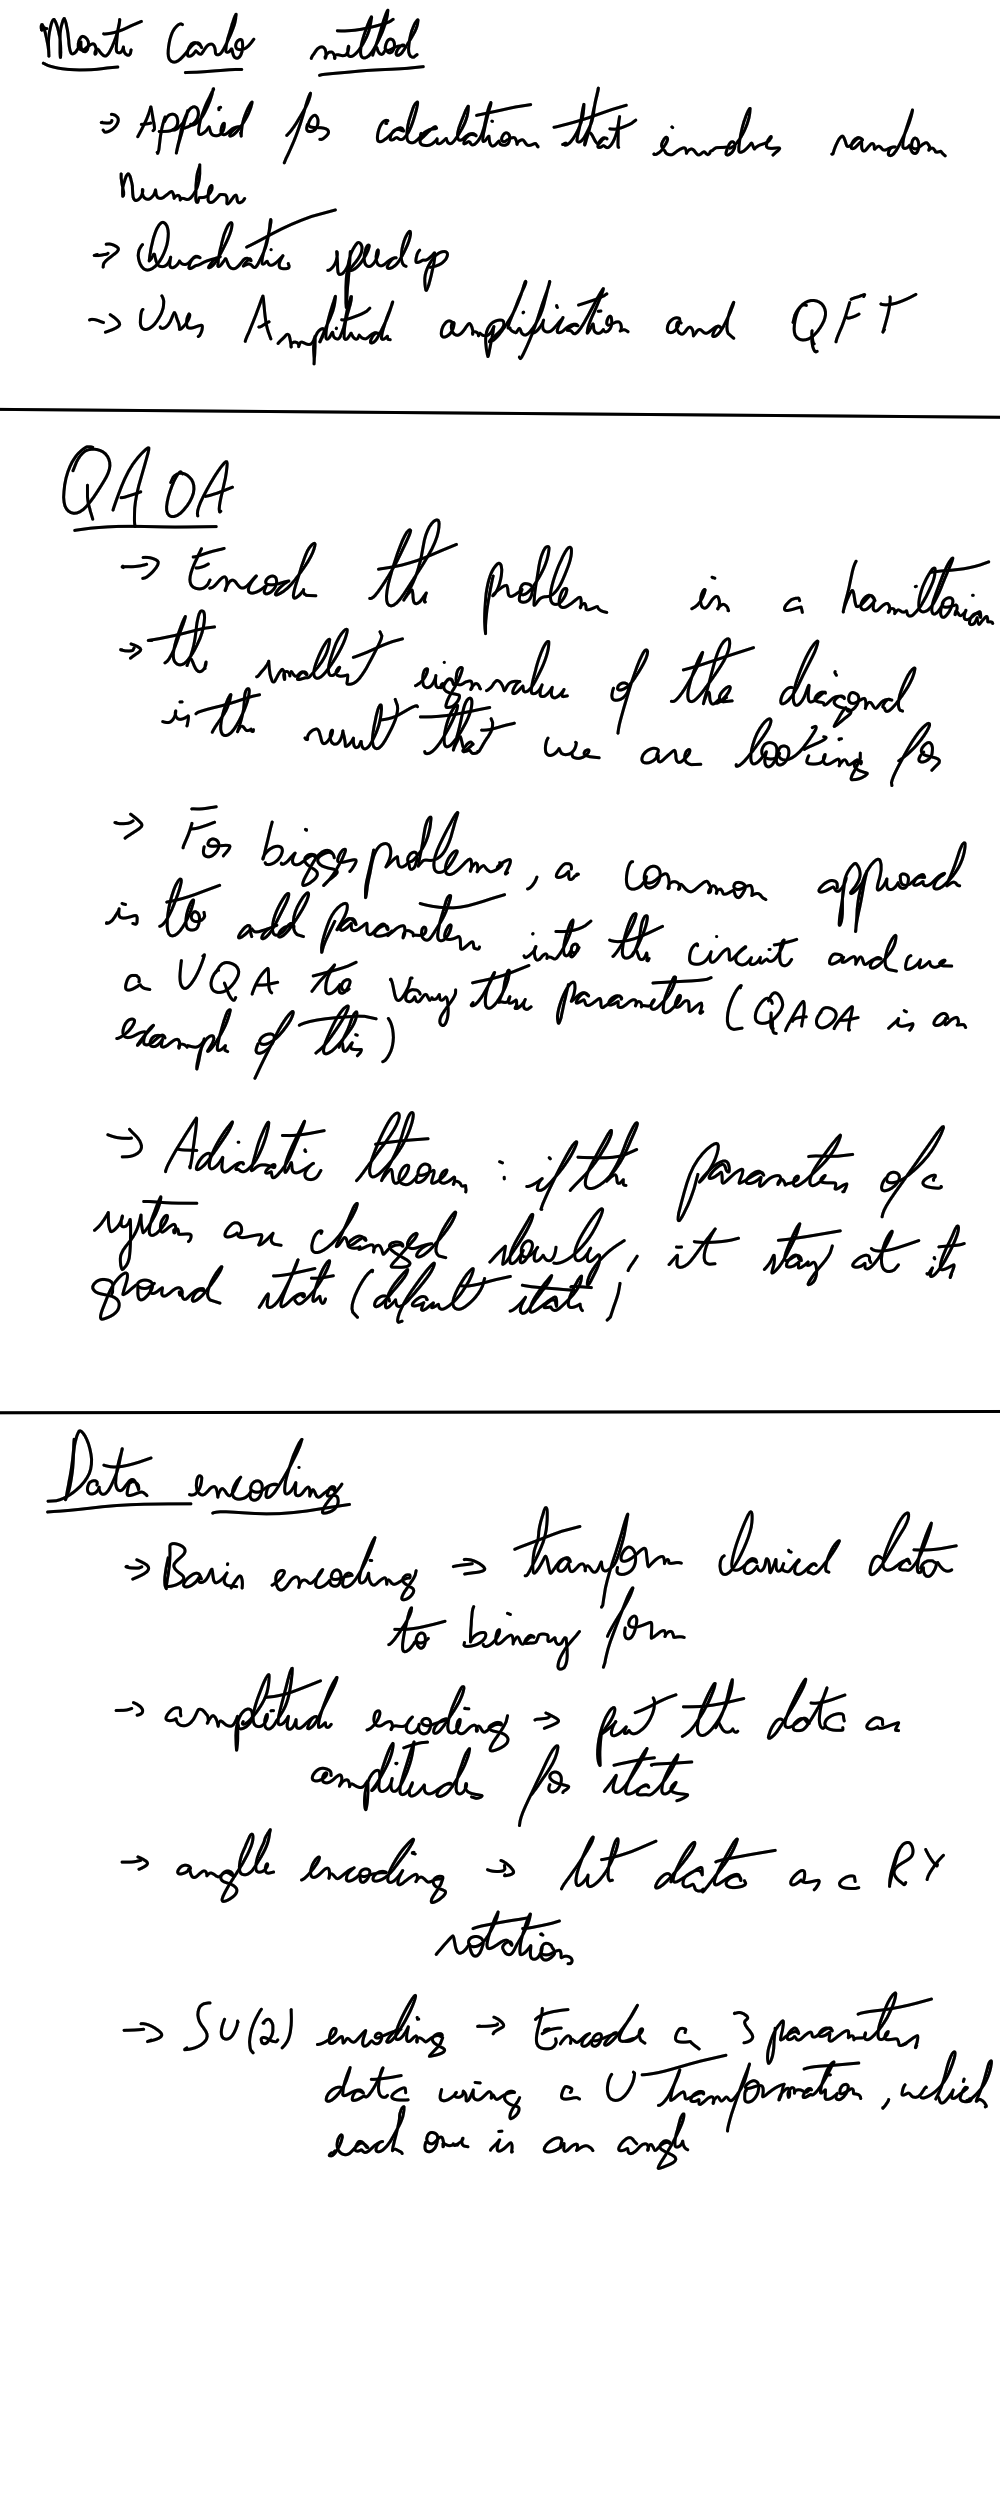 Monte Carlo method
⇒ Applied for calculations that includes random
Numbers
⇒ Quadratic speedup
⇒ Uses Amplitude amplification and QFT
QAOA
⇒ Encode the problem in a hamiltonian
⇒ the smallest eigenvalue of the diagonal
is the result that we are looking for
⇒ For bigger problems, a common approach
is to add parameters into the circuit and use
a VQA to vary the parameters (QAOA is an
example of this)
⇒ Adiabatic theorem : if the parameters of a
system are changed slowly, it stays at its
ground state (default state)
Data encoding
⇒ Basis encoding ⇒ transform classical data
to binary form
⇒ amplitude encoding ⇒ put the data as
amplitudes for states
⇒ angle encoding ⇒ data as a RY
rotation
⇒ SU(2) encoding ⇒ Encode a 3 parameters
data using a U transformation, which
each one is an angle